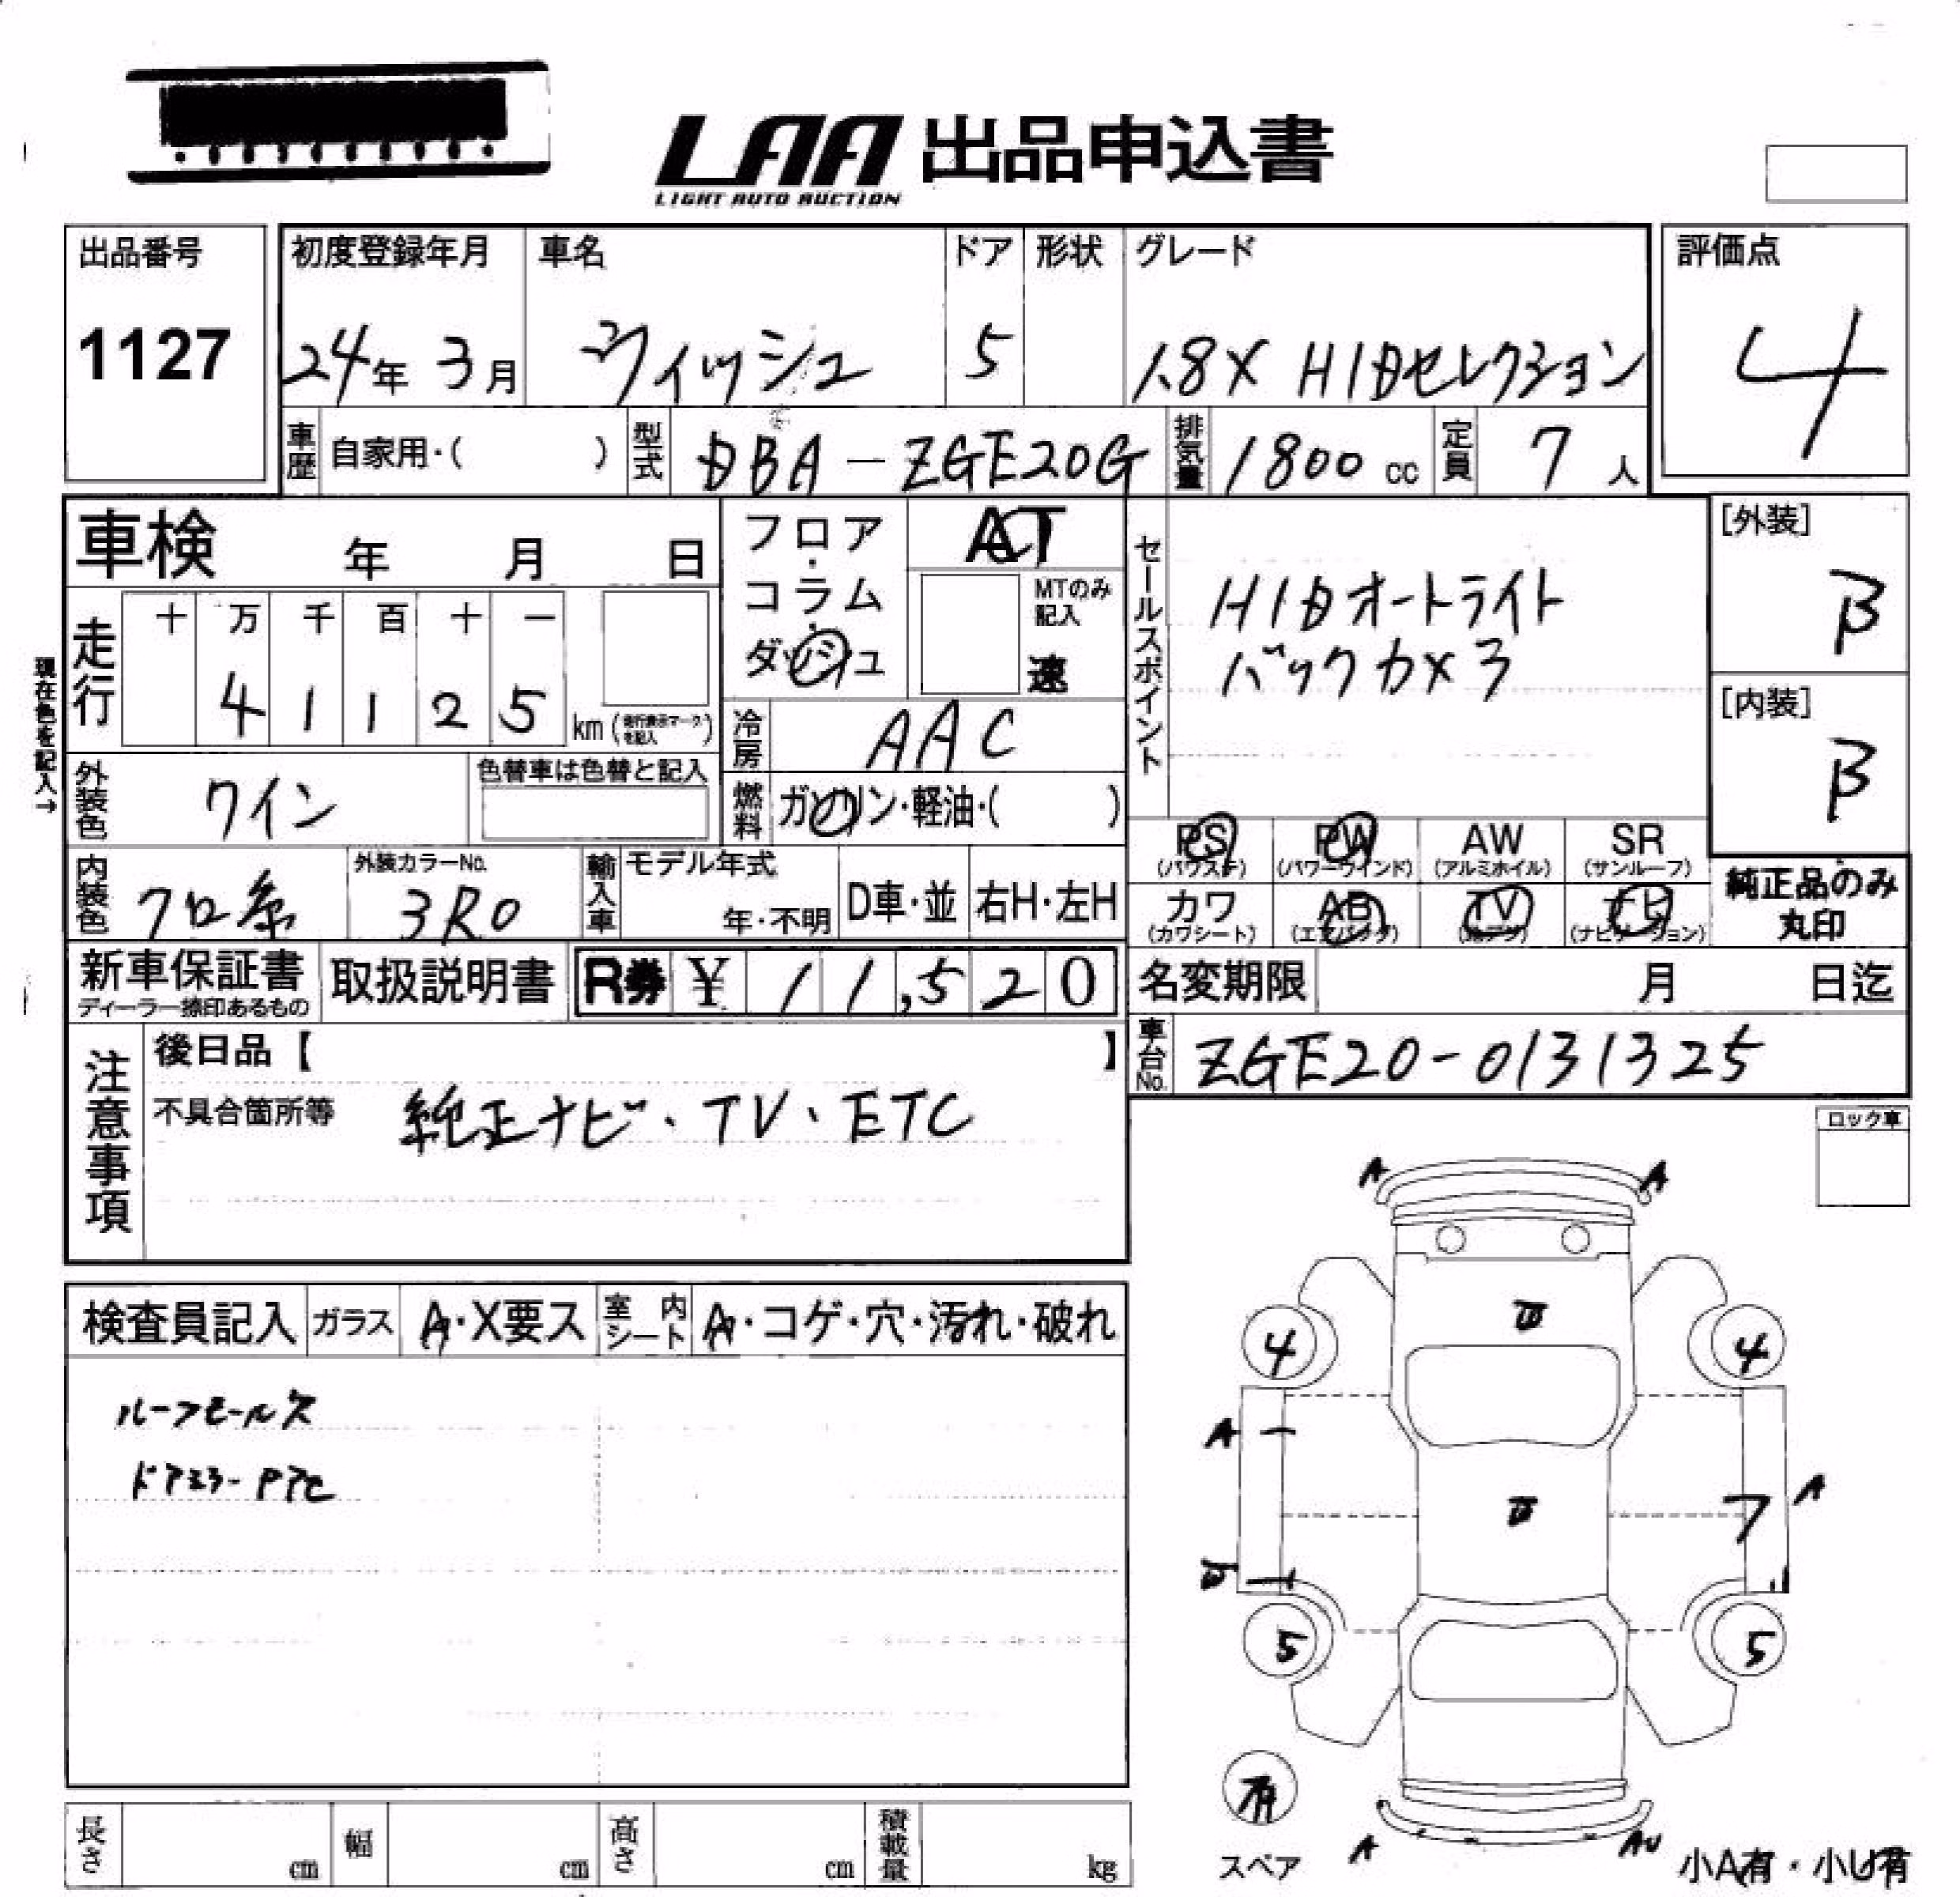 LAA 出品申込書
LIGHT AUTO AUCTION
出品番号 初度登録年月 車名 ドア 形状 グレード 評価点
1127 24年 3月 ウィッシュ 5 1.8X HIDセレクション 4
車歴 自家用・( ) 型式 DBA-ZGE20G 排気量 1800 cc 定員 7 人
車検 年 月 日
フロア・コラム・ダッシュ
AT
MTのみ記入
速
セールスポイント
HIDオートライト
バックカメラ
[外装]
B
[内装]
B
現在色を記入→
走行 十 万 千 百 十 一
4 1 1 2 5 km (走行表示マークを記入)
冷房 AAC
外装色 ワイン 色替車は色替と記入
燃料 ガソリン・軽油・( )
PS PW AW SR
(パワステ) (パワーウインド) (アルミホイル) (サンルーフ)
内装色 クロ系 外装カラーNo. 3R0 輸入車 モデル年式 年・不明 D車・並 右H・左H
カワ AB TV ナビ
(カワシート) (エアバック) (ナビゲーション)
純正品のみ
丸印
新車保証書 取扱説明書 R券 ¥ 11,520
ディーラー捺印あるもの
名変期限 月 日迄
車台No. ZGE20-0131325
注意事項
後日品【 】
不具合箇所等 純正ナビ・TV・ETC
ロック車
A A
検査員記入 ガラス A・X要ス 室内シート A・コゲ・穴・汚れ・破れ
4 4
ルーフモール欠
A
ドアミラーPアC
A
7
5 5
有
スペア
A AU
小A有・小U有
長さ cm 幅 cm 高さ cm 積載量 kg